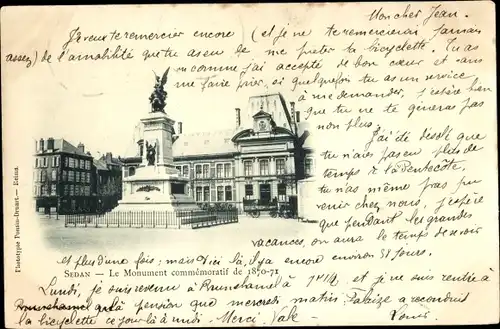 Mon cher Jean.
Je veux te remercier encore (et je ne te remercierai jamais
assez) de l'amabilité que tu as eu de me prêter ta bicyclette. Tu as
vu comme j'ai accepté de bon cœur et sans
me faire prier, si quelquefois tu as un service
à me demander, j'espère bien
que tu ne te gêneras pas
non plus.
J'ai été désolé que
tu n'aies pas eu plus de
temps à la Pentecôte,
tu n'as même pas pu
venir chez nous, j'espère
que pendant les grandes
vacances, on aura le temps de se voir
et plus d'une fois; mais d'ici là, il y a encore environ 58 jours.
SEDAN — Le Monument commémoratif de 1870-71
Lundi, je suis revenu à à et je ne suis rentré à
pension que mercredi matin a reconduit
la bicyclette ce jour là à midi. Merci. Vale —
Louis
Phototypie Pessin-Drumet. — Reims